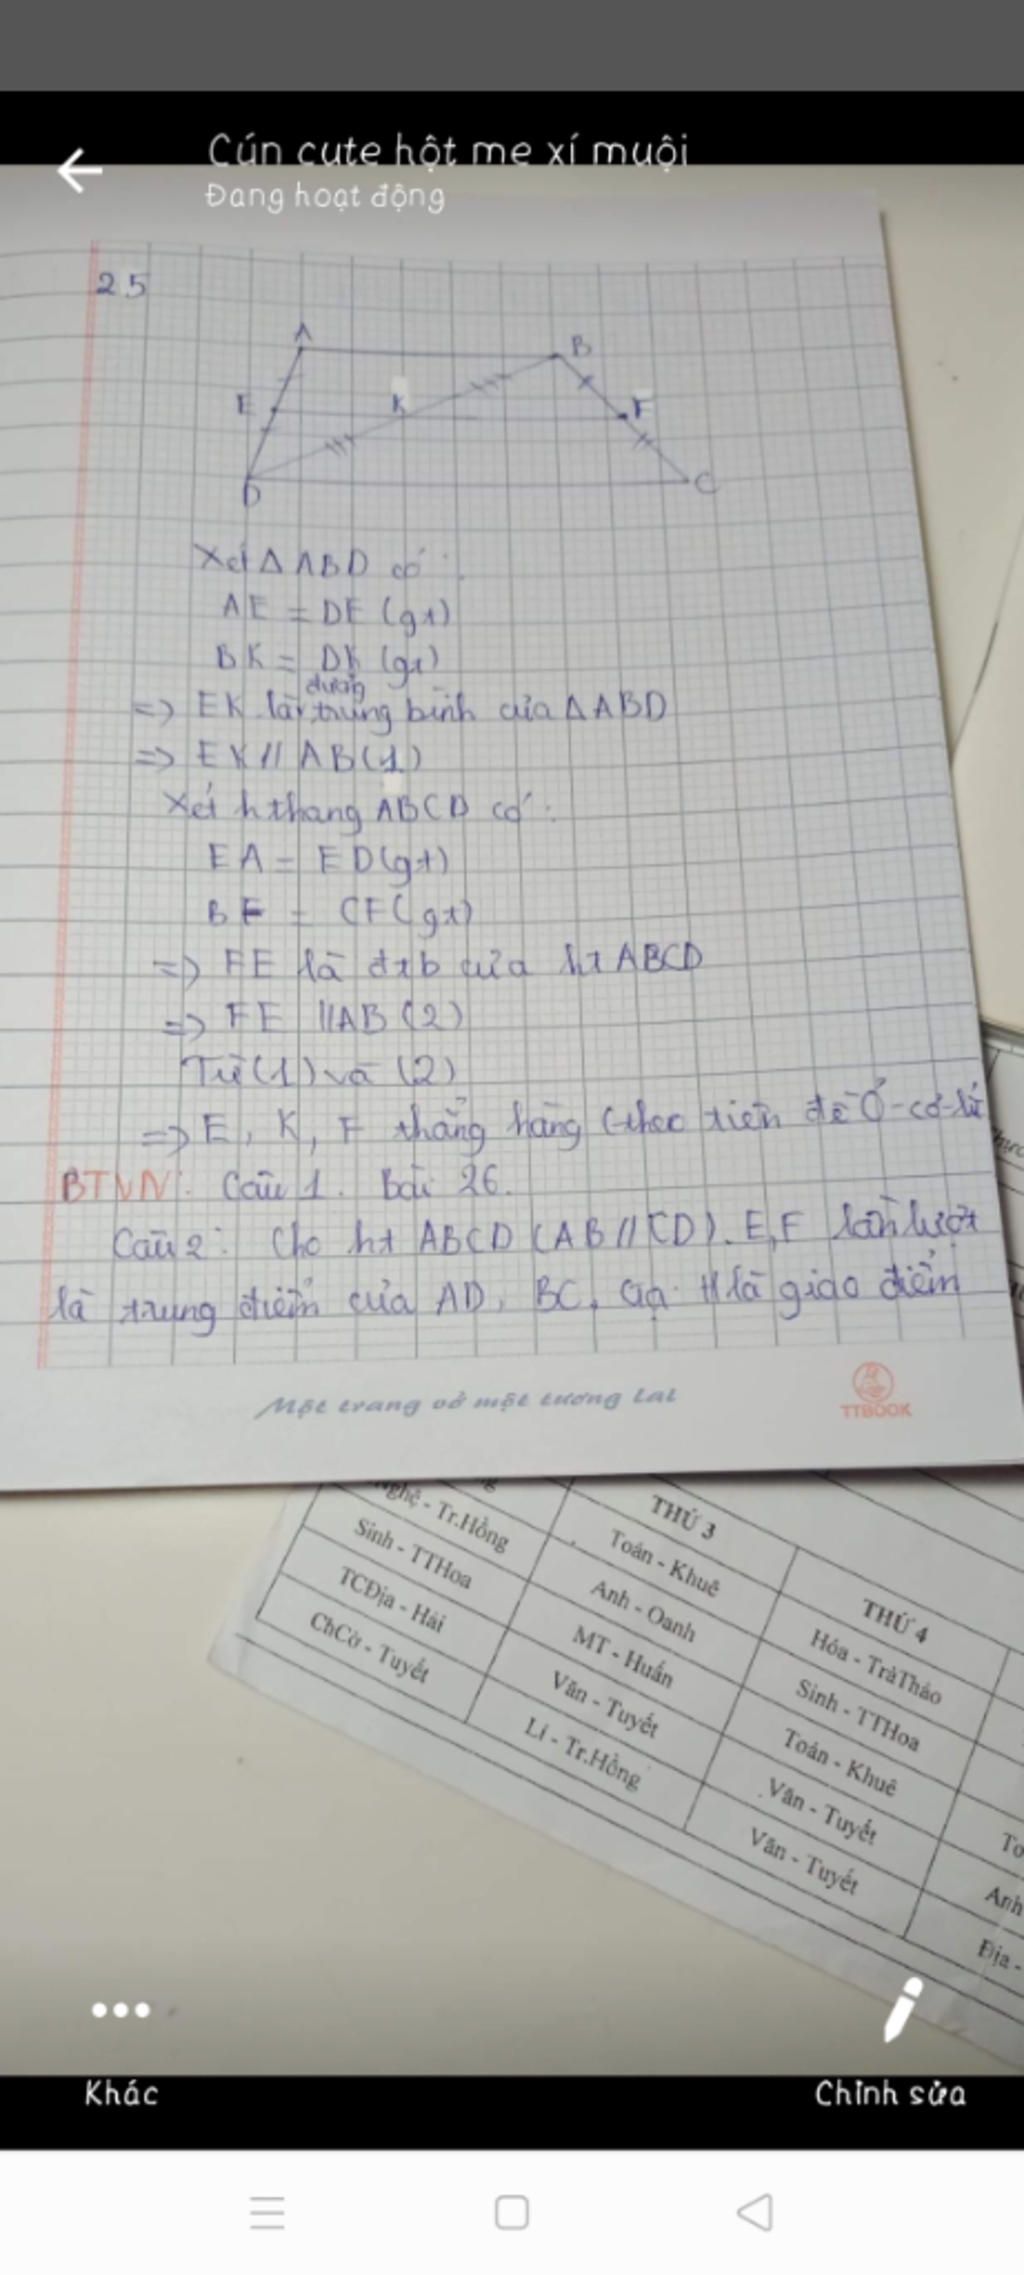 Cún cute hột me xí muội
Đang hoạt động
25
A
B
E
K
F
D
C
Xét Δ ABD có :
AE = DE (gt)
BK = DK (gt)
=> EK là đường trung bình của Δ ABD
=> EK // AB (1)
Xét hthang ABCD có :
EA = ED (gt)
BF = CF (gt)
=> FE là đtb của ht ABCD
=> FE // AB (2)
Từ (1) và (2)
=> E, K, F thẳng hàng (theo tiên đề Ơ-cơ-lit
BTVN: Câu 1. Bài 26.
Câu 2: Cho ht ABCD (AB // CD). E, F lần lượt
là trung điểm của AD, BC. Gọi H là giao điểm
Một trang vở một tương lai
TTBOOK
Nghệ - Tr.Hồng
Sinh - TTHoa
TCĐịa - Hải
ChCờ - Tuyết
THỨ 3
Toán - Khuê
Anh - Oanh
MT - Huấn
Văn - Tuyết
Lí - Tr.Hồng
THỨ 4
Hóa - TràThảo
Sinh - TTHoa
Toán - Khuê
Văn - Tuyết
Văn - Tuyết
Anh
Địa -
Khác
Chỉnh sửa